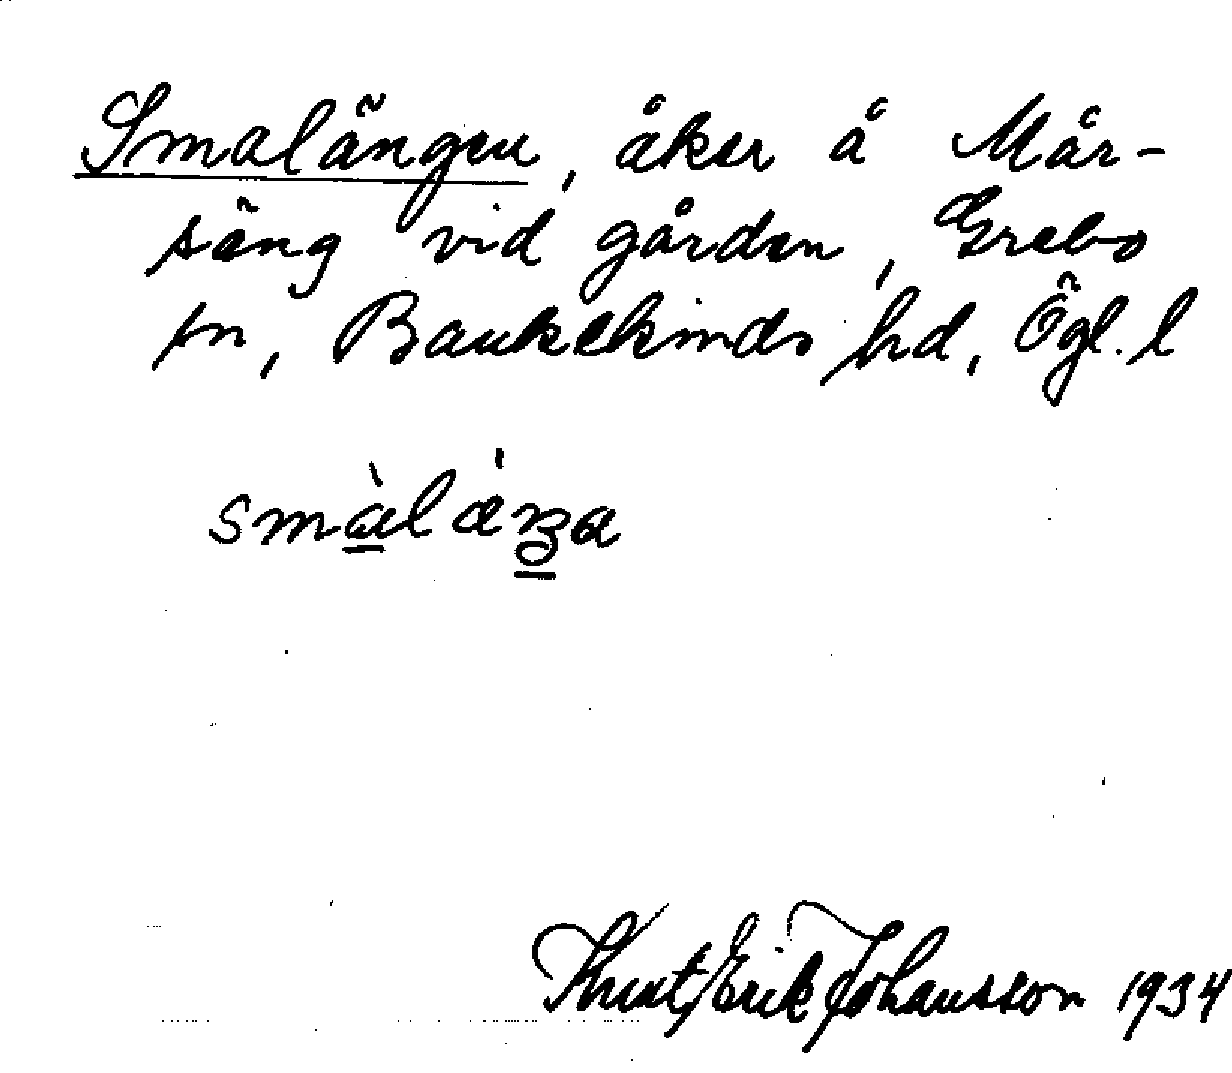 Smalängen, åker å Mår-
säng vid gården, Grebo
sn, Bankekinds hd, Ögl. l
smàlǽŋa
Knut Erik Johansson 1934